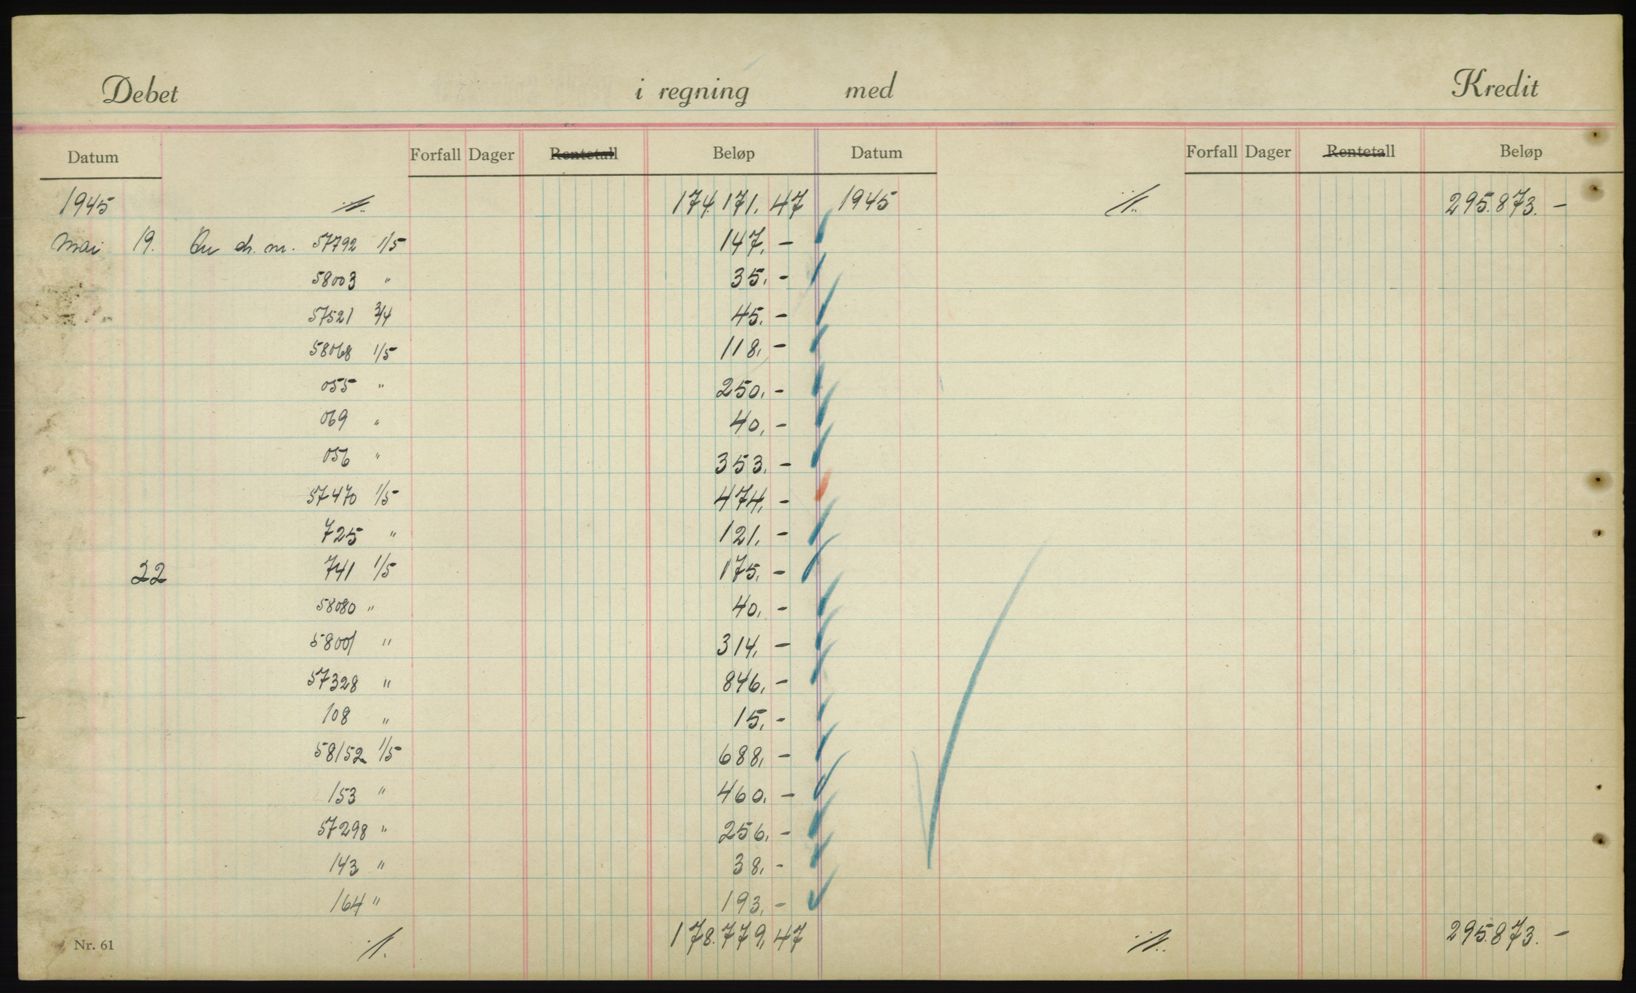 Debet i regning med Kredit
Datum Forfall Dager Rentetall Beløp Datum Forfall Dager Rentetall Beløp
1945 ./. 174.171.47 1945 ./. 295.873.-
Mai 19. ch. nr. 57792 1/5 147.-
58003 " 35.-
57521 3/4 45.-
58068 1/5 118.-
055 " 250.-
069 " 40.-
056 " 353.-
57470 1/5 474.-
725 " 121.-
22 741 1/5 175.-
58080 " 40.-
58001 " 314.-
57328 " 846.-
108 " 15.-
58152 1/5 688.-
153 " 460.-
57298 " 256.-
143 " 38.-
164 " 193.-
Nr. 61 ./. 178.779.47 ./. 295.873.-